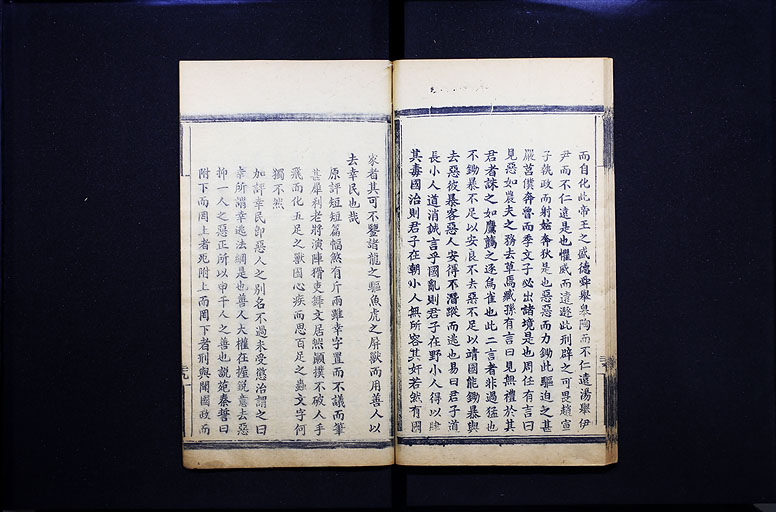 而自化此帝王之盛德舜舉臯陶而不仁遠湯舉伊
尹而不仁遠是也懼威而遠遯此刑辟之可畏趙宣
子執政而射姑奔狄是也惡惡而力鋤此驅迫之甚
嚴莒僕奔魯而季文子必出諸境是也周任有言曰
見惡如農夫之務去草焉臧孫有言曰見無禮於其
君者誅之如鷹鸇之逐鳥雀也此二言者非過猛也
不鋤暴不足以安良不去惡不足以靖國能鋤暴與
去惡彼暴客惡人安得不潛蹤而逃也易曰君子道
長小人道消誠言乎國亂則君子在野小人得以肆
其毒國治則君子在朝小人無所容其奸若然有國
家者其可不鑒諸龍之驅魚虎之屏獸而用善人以
去幸民也哉
原評短短篇幅煞有斤兩雖幸字置而不議而筆
甚犀利老將演陣猾吏舞文居然顛撲不破人手
飛而化五足之獸因心疾而思百足之蟲文字何
獨不然
加評幸民即惡人之別名不過未受懲治謂之曰
幸所謂幸逃法網是也善人大權在握銳意去惡
抑一人之惡正所以申千人之善也說苑秦誓曰
附下而罔上者死附上而罔下者刑與聞國政而